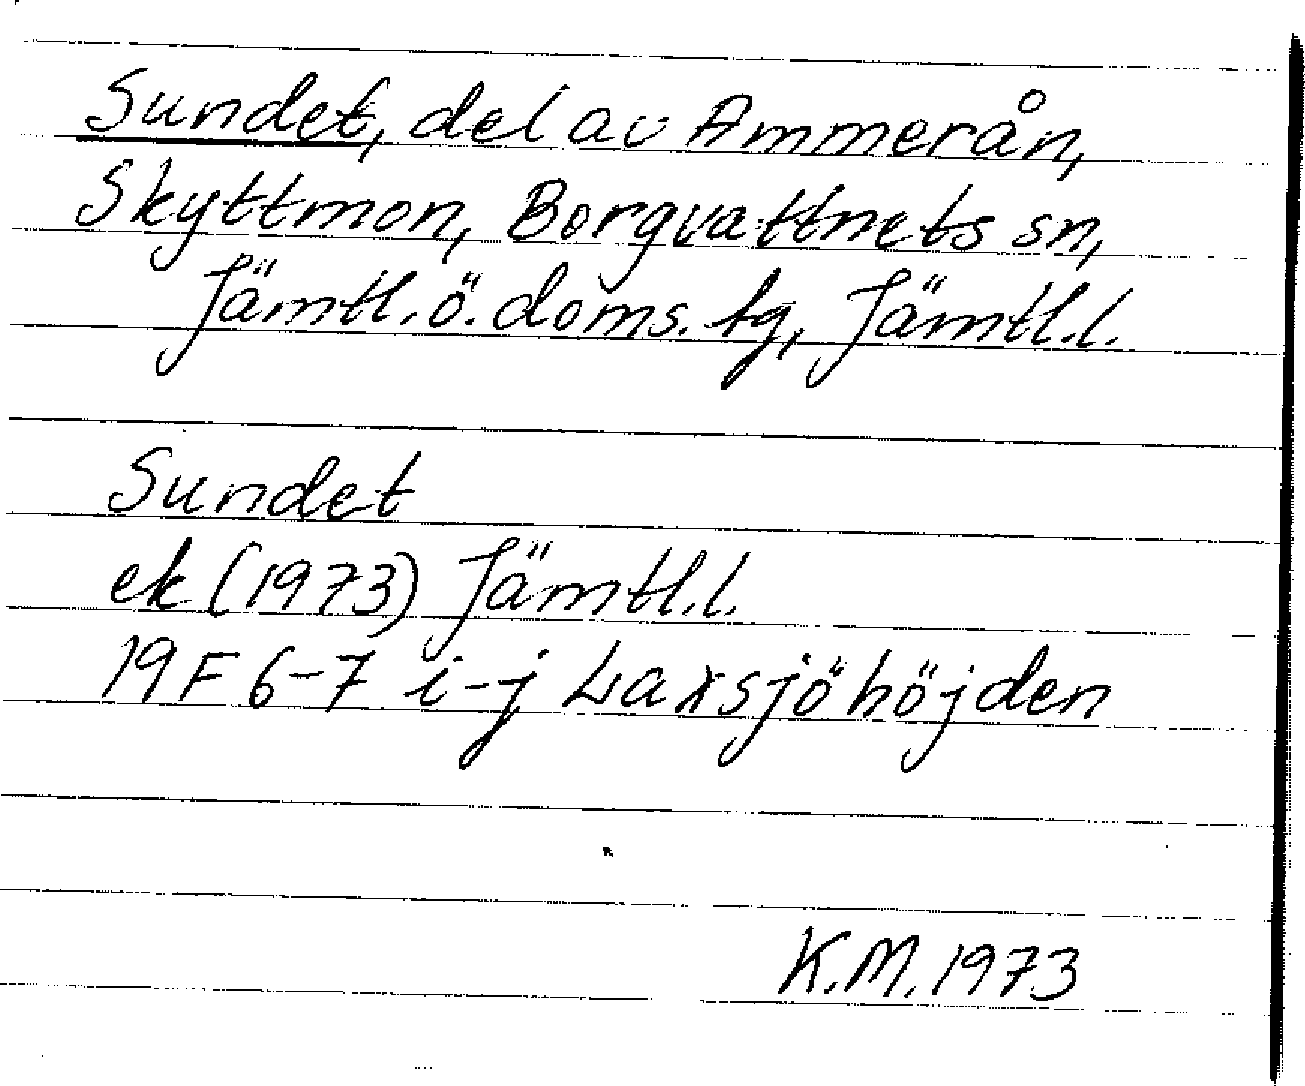 Sundet, del av Ammerån,
Skyttmon, Borgvattnets sn,
Jämtl. ö. doms. tg, Jämtl. l.
Sundet
ek (1973) Jämtl. l.
19F 6-7 i-j Laxsjöhöjden
K.M. 1973